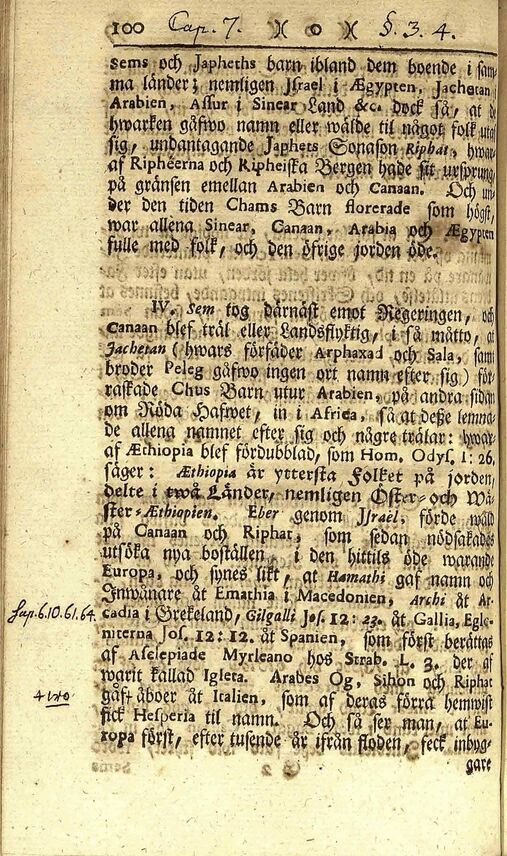 100 Cap. 7. )( o )( §. 3. 4.
Sems och Japheths barn ibland dem boende i sam-
ma länder; nemligen Israel i Ægypten, Jachetan i
Arabien, Assur i Sinear Land &c. dock så, at de
hwarken gåfwo namn eller wälde til något folk utaf
sig, undantagande Japhets Sonason Riphat, hwar-
af Ripheerna och Ripheiska Bergen hade sit ursprung
på gränsen emellan Arabien och Canaan. Och un-
der den tiden Chams Barn florerade som högst,
war allena Sinear, Canaan, Arabia och Ægypten
fulle med folk, och den öfrige jorden öde.
IV. Sem tog därnäst emot Regeringen, och
Canaan blef träl eller Landsflyktig, i så måtto, at
Jachetan (hwars förfäder Arphaxad och Sala, samt
broder Peleg gåfwo ingen ort namn efter sig) för-
raskade Chus Barn utur Arabien, på andra sidan
om Röda Hafwet, in i Africa, så at desze lemna-
de allena namnet efter sig och någre trälar: hwar-
af Æthiopia blef fördubblad, som Hom. Odys. 1: 26,
säger: Æthiopia är yttersta Folket på jorden,
delte i twå Länder, nemligen Öster- och Wä-
ster-Æthiopien. Eber genom Israel, förde wåld
på Canaan och Riphat, som sedan nödsakades
utsöka nya boställen, i den hittils öde warande
Europa, och synes likt, at Hamathi gaf namn och
Inwånare åt Emathia i Macedonien, Archi åt Ar-
cadia i Grekeland, Gilgalli Jos. 12: 23. åt Gallia, Egle-
niterna Jos. 12: 12. åt Spanien, som först berättas
af Asclepiade Myrleano hos Strab. L. 3. der af
warit kallad Igleta. Arabes Og, Sihon och Riphat
gåft åboer åt Italien, som af deras förra hemwist
fick Hesperia til namn. Och så ser man, at Eu-
ropa först, efter tusende år ifrån floden, feck inbyg-
gare